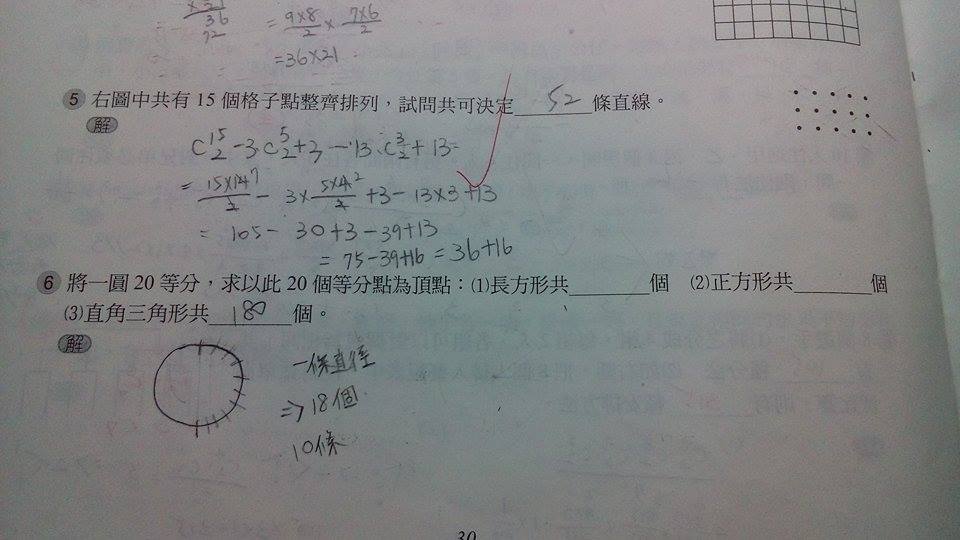 36
72
= 9×8/2 × 7×6/2
= 36×21
5 右圖中共有 15 個格子點整齊排列，試問共可決定 52 條直線。
解
C^15_2 - 3·C^5_2 + 3 - 13·C^3_2 + 13 =
= 15×14 7/2 - 3× 5×4 2/2 + 3 - 13×3 + 13
= 105 - 30 + 3 - 39 + 13
= 75 - 39 + 16 = 36 + 16
6 將一圓 20 等分，求以此 20 個等分點為頂點：(1)長方形共______個 (2)正方形共______個
(3)直角三角形共 180 個。
解
一條直徑
⇒ 18個
10條
30